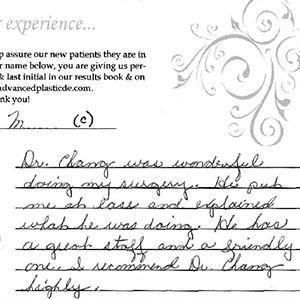 experience...
p assure our new patients they are in
r name below, you are giving us per-
& last initial in our results book & on
advancedplasticde.com.
nk you!
M...... (C)
Dr. Chang was wonderful
doing my surgery. He put
me at ease and explained
what he was doing. He has
a great staff and a friendly
one. I recommend Dr. Chang
highly.